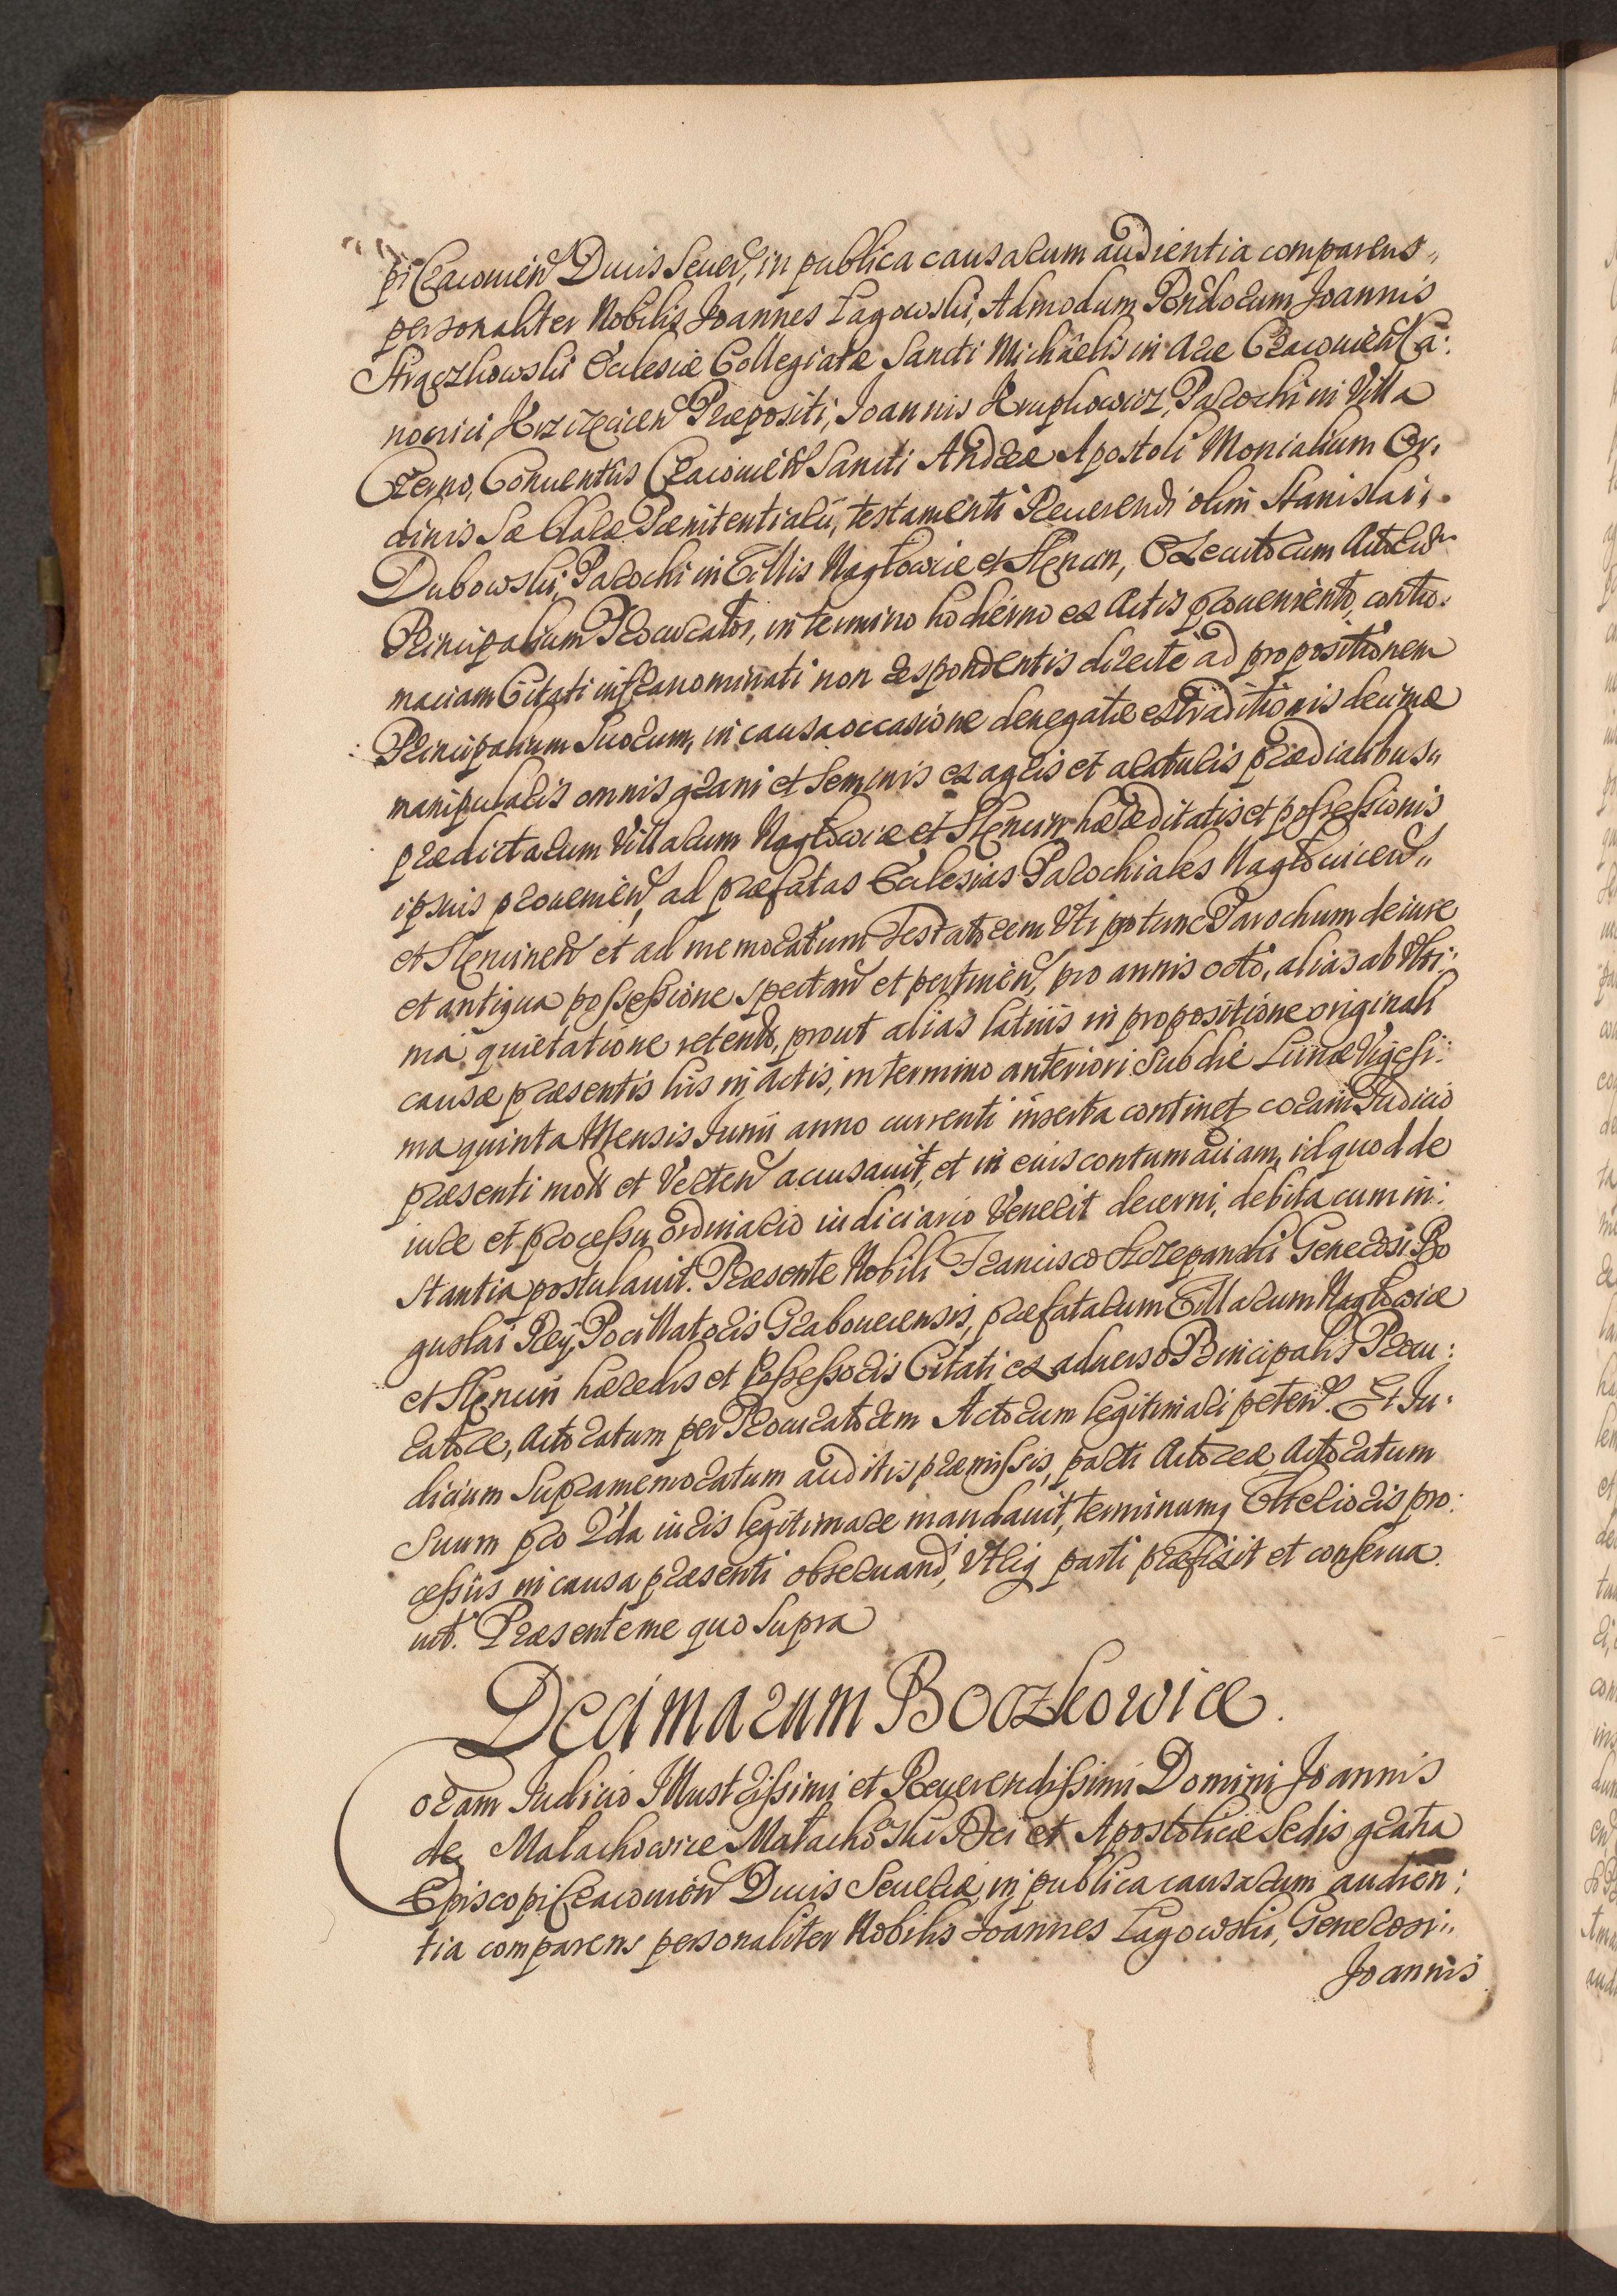 pi Cracovien Ducis Sever, in publica causarum audientia comparens
personaliter Nobilis Joannes Łagowski, Admodum Rndorum Joannis
Strączkowski Ecclesiæ Collegiatæ Sancti Michäelis in Arce Cracovien Ca:
nonici Præpositi, Joannis Krupkowicz, Parochi in Villa
Czerno, Conventûs Cracovien Sancti Andreæ Apostoli Monialium Or:
dinis Sæ Claræ Pœnitentiarÿ, testamenti Reverendi olim Stanislai
Dubowski, Parochi in Villis Nagłowice et Slęcin, Executorum Actor
Principalium Procurator, in termino hodierno ex Actis provenient, contu:
maciam Citati infranominati non respondentis directè ad propositionem
Principalium Suorum, in causa occasione denegatæ extraditionis decimæ
manipularis omnis grani et seminis ex agris et araturis prædialibus
prædictarum Villarum Nagłowice et Slęcin hæreditatis et possessionis
ipsius provenien, ad præfatas Ecclesias Parochiales Nagłovicen
et Slęcinen et ad memoratum Testatorem Uti pro tunc Parochum de iure
et antiqua possessione spectan et pertinen, pro annis octo, alias ab Ulti:
ma quietatione retent, prout alias latiùs in propositione originali
causæ præsentis his in Actis, in termino anteriori sub die Lunæ Vigesi:
ma quinta Mensis Junii anno currenti inserta continet coram Judicio
præsenti mota et Verten accusavit, et in eius contumaciam, id quod de
iure et processu ordinario iudiciario Venerit decerni, debita cum in:
stantia postulavit. Præsente Nobili Francisco Szczepanski Generosi Bo
guslai Reÿ, Pocillatoris Grabovecensis, præfatarum Villarum Nagłowice
et Slęcin hæredis et Possessoris Citati ex adverso Principalis Procu:
ratore, Actoratum per Procuratorem Actorum legitimari peten. Et Ju:
dicium Supramemoratum auditis præmissis, parti Actoreæ Actoratum
Suum pro 2da iuris legitimare mandavit, terminumq Ulterioris pro:
cessûs in causa præsenti observand, Utriq parti præfixit et conserva
vit. Præsente me quo Supra
Decimarum Boczkowice.
Coram Judicio Illustrissimi et Reverendissimi Domini Joannis
de Małachowice Małachowski Dei et Apostolicæ Sedis gratia
Episcopi Cracovien Ducis Severiæ, in publica causarum audien:
tia comparens personaliter Nobilis Joannes Łagowski, Generosi
Joannis